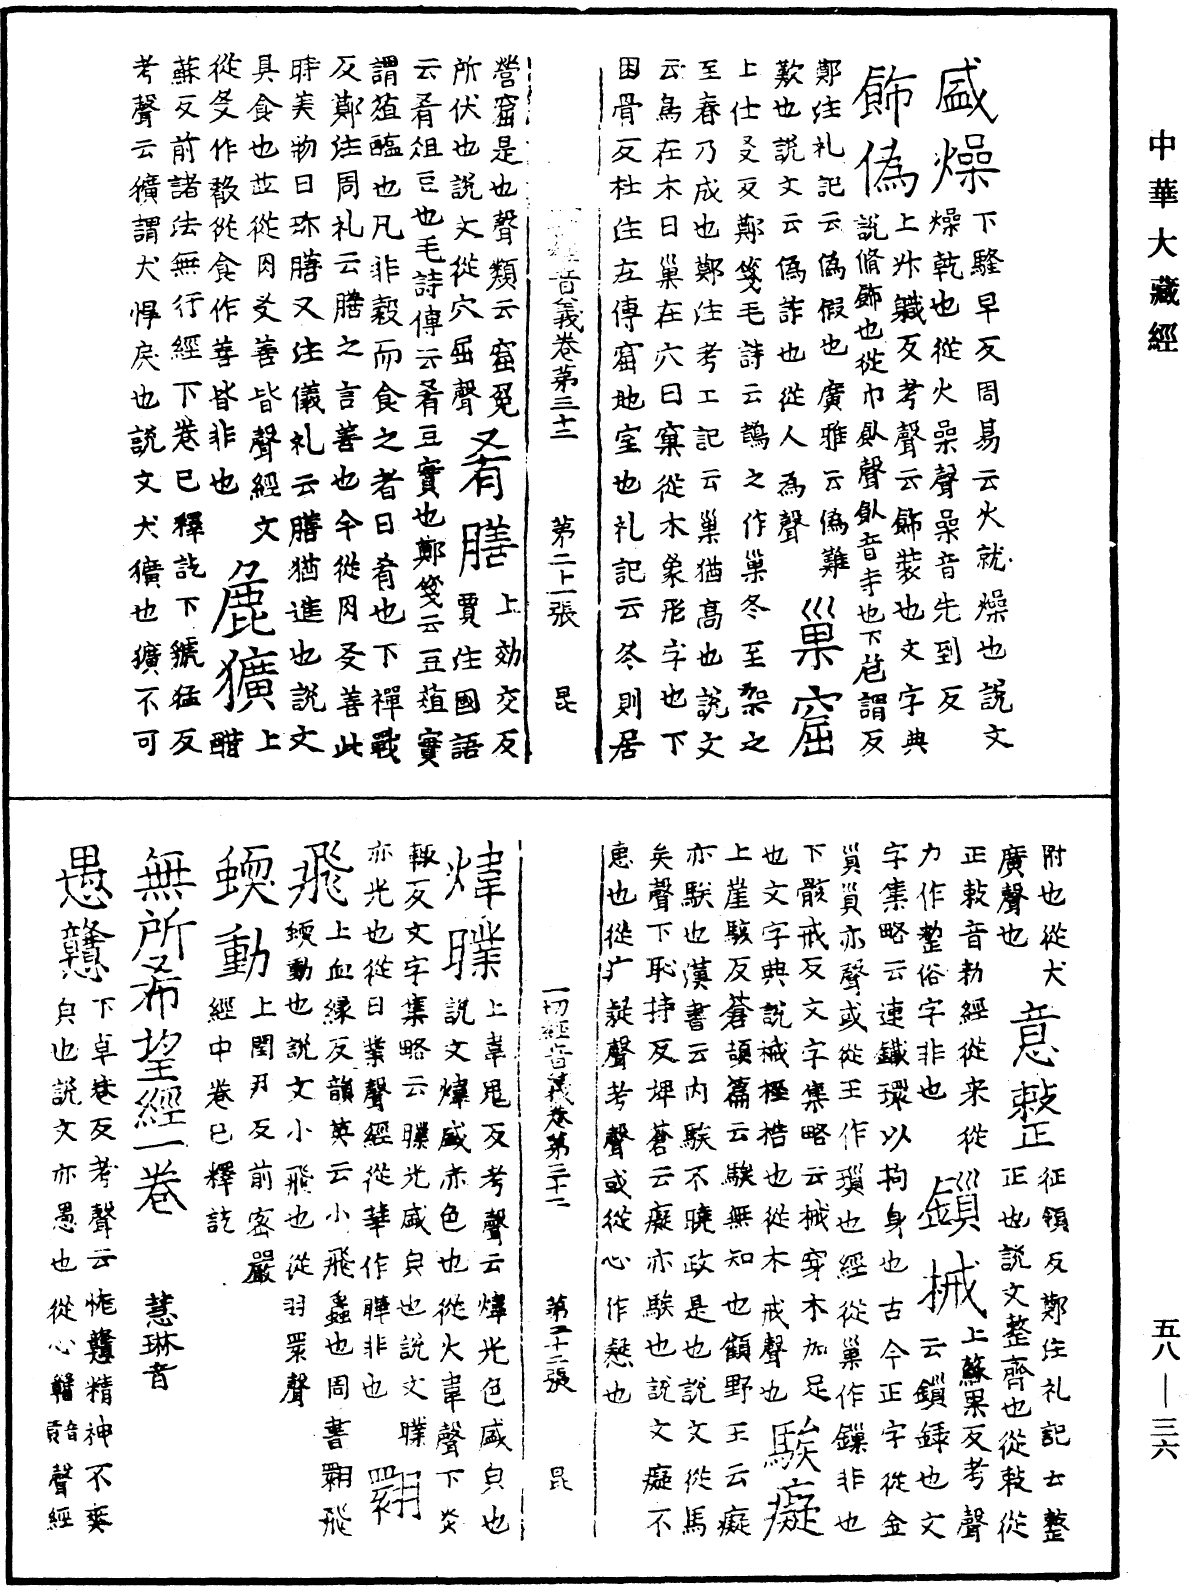 中華大藏經
盛燥下騷早反周易云火就燥也說文
燥乾也從火喿聲喿音先到反
飾偽上㫑軄反考聲云飾裝也文字典
說脩飾也從巾飤聲飤音寺也下危謂反
鄭注礼記云偽假也廣雅云偽難
歎也說文云偽詐也從人為聲巢窟
上仕爻反鄭箋毛詩云鵲之作巢冬至架之
至春乃成也鄭注考工記云巢猶高也說文
云鳥在木曰巢在穴曰窠從木象形字也下
困骨反杜注左傳窟地室也礼記云冬則居
音義卷第三十三 第二十一張 昆
營窟是也聲類云窟兔
所伏也說文從穴屈聲肴膳上効交反賈注國語
云肴俎豆也毛詩傳云肴豆實也鄭箋云豆葅實
謂葅醢也凡非穀而食之者曰肴也下禪戰
反鄭注周礼云膳之言善也今從月又善此
時美物曰珎膳又注儀礼云膳猶進也說文
具食也並從肉爻善皆聲經文
從殳作㪚從食作善皆非也麁獷上醋
蘇反前諸法無行經下卷已釋訖下虢猛反
考聲云獷謂犬悍戾也說文犬獷也獷不可
附也從犬
廣聲也意㪘正征領反鄭注礼記云整
正敕音勑經從来從正也說文整齊也從敕從
力作整俗字非也鏁械上蘇果反考聲云鏁鏁也文
字集略云連鐵環以拘身也古今正字從金
𧴪𧴪亦聲或從玉作瑣也經從巢作鏁非也
下骸戒反文字集略云械穿木加足
也文字典說械桎梏也從木戒聲也騃癡
上崖駭反蒼頡篇云騃無知也顧野王云癡
亦騃也漢書云內騃不曉政是也說文從馬
矣聲下恥持反埤蒼云癡亦騃也說文癡不
惠也從疒疑聲考聲或從心作懝也
一切經音義卷第三十三 第二十二張 昆
煒㬥上韋鬼反考聲云煒光色盛皃也
說文煒盛赤色也從火韋聲下炎
輒反文字集略云㬥光盛皃也說文㬥
亦光也從日㬥聲經從華作曄非也翾
飛上血緣反韻英云小飛蟲也周書翾飛
蝡動也說文小飛也從羽睘聲
蝡動上閏尹反前密嚴
經中卷已釋訖
無所希望經一卷 慧琳音
愚戇下卓巷反考聲云恠戇精神不爽
皃也說文亦愚也從心贛聲經
五八—三六